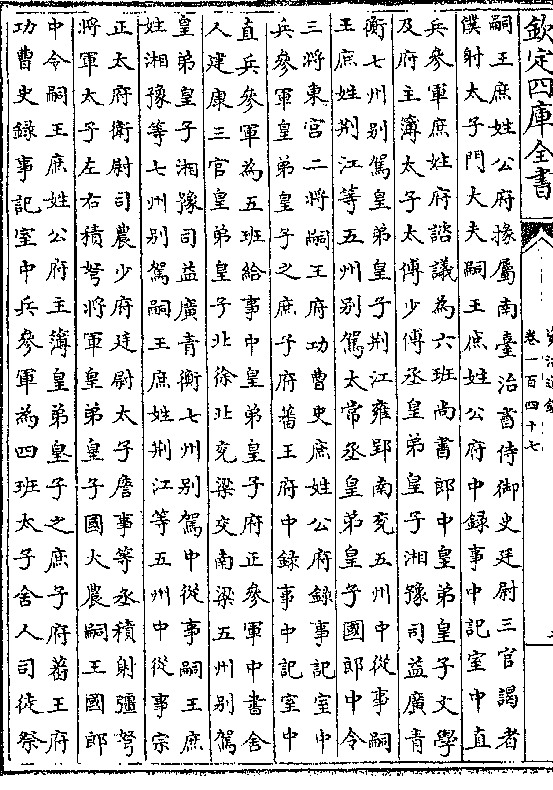 欽定四庫全書
卷一百四十七
嗣王庶姓公府掾屬南臺治書侍御史廷尉三官謁者
僕射太子門大夫嗣王庶姓公府中録事中記室中直
兵參軍庶姓府諮議為六班尚書郎中皇弟皇子文學
及府主簿太子太傅少傅丞皇弟皇子湘豫司益廣青
衡七州别駕皇弟皇子荆江雍郢南兖五州中從事嗣
王庶姓荆江等五州别駕太常丞皇弟皇子國郎中令
三將東宫二將嗣王府功曹史庶姓公府録事記室中
兵參軍皇弟皇子之庶子府蕃王府中録事中記室中
直兵參軍為五班給事中皇弟皇子府正參軍中書舍
人建康三官皇弟皇子北徐北兖梁交南梁五州别駕
皇弟皇子湘豫司益廣青衡七州别駕中從事嗣王庶
姓湘豫等七州别駕嗣王庶姓荆江等五州中從事宗
正太府衛尉司農少府廷尉太子詹事等丞積射彊弩
將軍太子左右積弩將軍皇弟皇子國大農嗣王國郎
中令嗣王庶姓公府主簿皇弟皇子之庶子府蕃王府
功曹史録事記室中兵參軍為四班太子舍人司徒祭